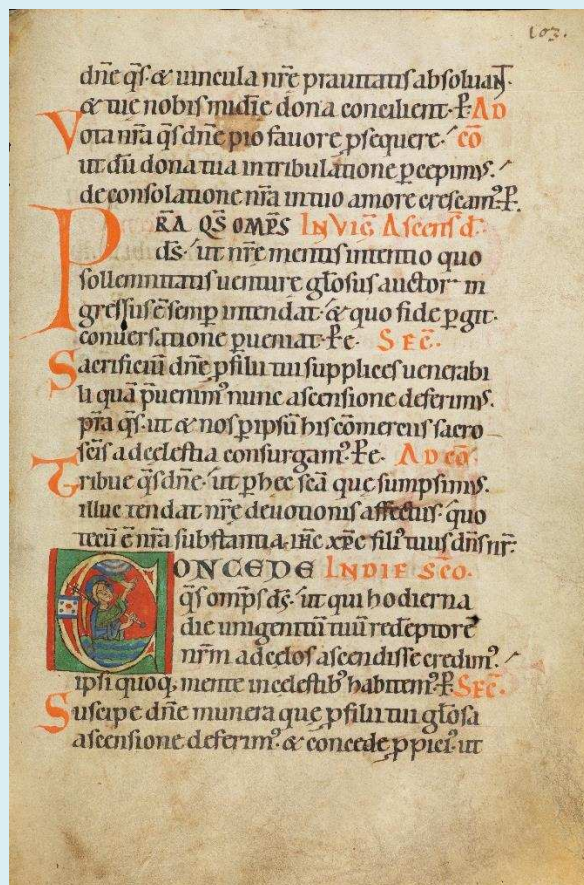 103.
dñe q̄s. & uincula nr̄e prauitatis absoluant
& tue nobis mīdie dona concilient. P. AD
Vota nr̄a q̄s dñe pio fauore ꝓsequere. cō
ut dū dona tua in tribulatione ꝑcepimꝰ.
de consolatione nr̄a in tuo amore crescamꝰ. P.
PRA QS OMPS IN VIG Ascens d.
ds. ut nr̄e mentis intentio quo
sollemnitatis uenture gl̄osus auctor in
gressus ē semꝑ intendat. & quo fide ꝑgit.
conuersatione ꝑueniat. P. e. SEC.
Sacrificiū dñe ꝓ filii tui supplices uenerabi
li quā p̄uenimꝰ nunc ascensione deferimꝰ.
p̄ra q̄s. ut & nos ꝑ ipsū his cōmerciis sacro
sc̄is ad celestia consurgamꝰ. P. e. AD cō.
Tribue q̄s dñe. ut ꝑ hec sc̄a que sumpsimꝰ.
illuc tendat nr̄e deuotionis affectus. quo
tecū ē nr̄a substantia. ihc xpc filiꝰ tuus dñs nr̄.
CONCEDE IN DIE SCO.
q̄s omps ds. ut qui hodierna
die unigenitū tuū redēptorē
nr̄m ad celos ascendisse credimꝰ.
ipsi quoq; mente in celestibꝰ habitemꝰ. P. SEC.
Suscipe dñe munera que ꝓ filii tui gl̄osa
ascensione deferimꝰ. & concede ꝓpiciꝰ. ut